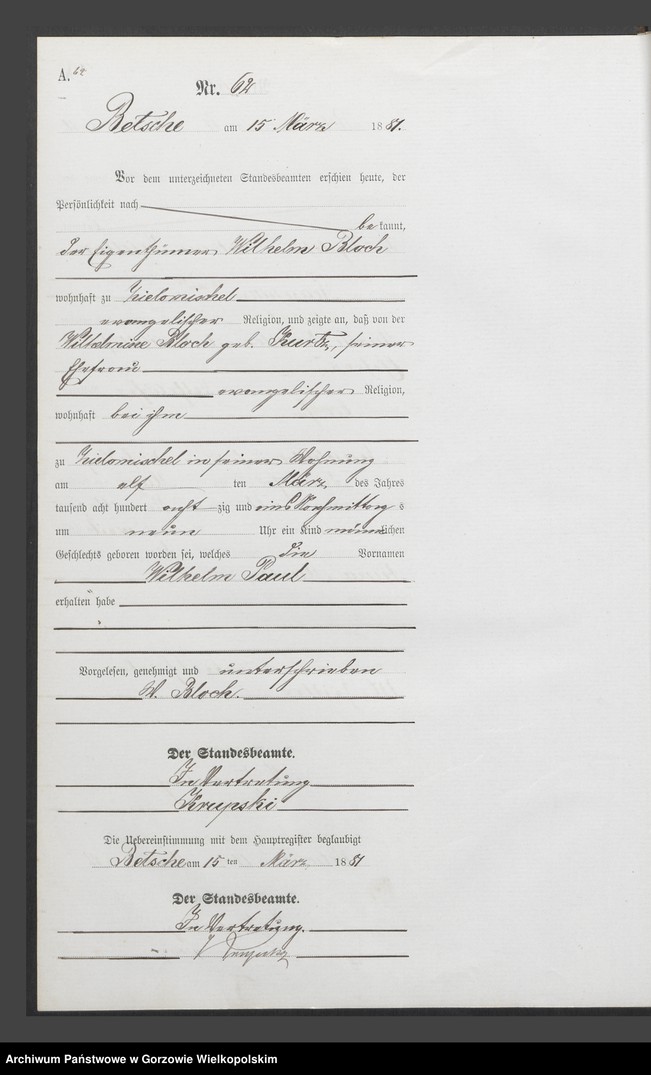 A. 62
Nr. 62
Betsche am 15 März 1881.
Vor dem unterzeichneten Standesbeamten erschien heute, der
Persönlichkeit nach
bekannt,
der Eigenthümer Wilhelm Bloch
wohnhaft zu Zielomischel
evangelischer Religion, und zeigte an, daß von der
Wilhelmine Bloch geb. Kurtz, seiner
Ehefrau
evangelischer Religion,
wohnhaft bei ihm
zu Zielomischel in seiner Wohnung
am elf ten März des Jahres
tausend acht hundert acht zig und eins Vormittag s
um neun Uhr ein Kind männlichen
Geschlechts geboren worden sei, welches die Vornamen
Wilhelm Paul
erhalten habe
Vorgelesen, genehmigt und unterschrieben
W. Bloch.
Der Standesbeamte.
In Vertretung
Krupski
Die Uebereinstimmung mit dem Hauptregister beglaubigt
Betsche am 15 ten März 1881
Der Standesbeamte.
In Vertretung.
Krupski
Archiwum Państwowe w Gorzowie Wielkopolskim